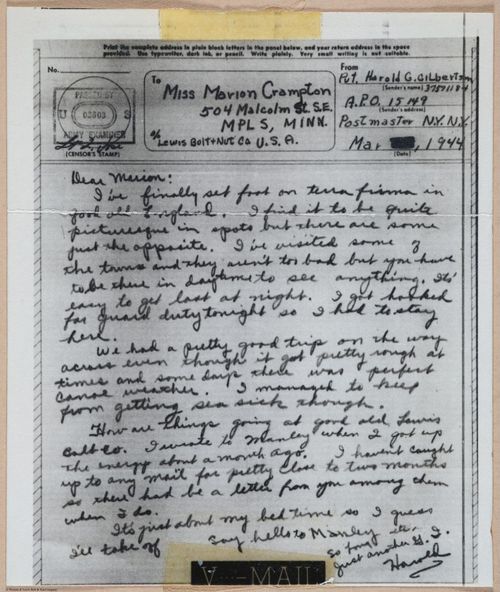 Print the complete address in plain block letters in the panel below, and your return address in the space
provided. Use typewriter, dark ink, or pencil. Write plainly. Very small writing is not suitable.
No.
To
Miss Marion Crampton
504 Malcolm St. S.E.
MPLS, MINN.
% Lewis Bolt + Nut Co U.S.A.
From
Pvt. Harold G. Gilbertson
(Sender's name)
A.P.O. 15149
(Sender's address)
Postmaster N.Y. N.Y.
Mar , 1944
(Date)
PASSED BY
U S
ARMY EXAMINER
(CENSOR'S STAMP)
Dear Marion:
I've finally set foot on terra firma in
good old England. I find it to be quite
picturesque in spots but there are some
just the opposite. I've visited some of
the towns and they aren't too bad but you have
to be there in daytime to see anything. It's
easy to get lost at night. I got hooked
for guard duty tonight so I had to stay
here.
We had a pretty good trip on the way
across even though it got pretty rough at
times and some days there was perfect
canoe weather. I managed to keep
from getting sea sick though.
How are things going at good old Lewis
Bolt Co. I wrote to Manley when I got up
the energy about a month ago. I haven't caught
up to any mail for pretty close to two months
so there had be a letter from you among them
when I do.
It's just about my bed time so I guess
I'll take off Say hello to Manley
So long
Just another G. I.
Harold
V···—MAIL